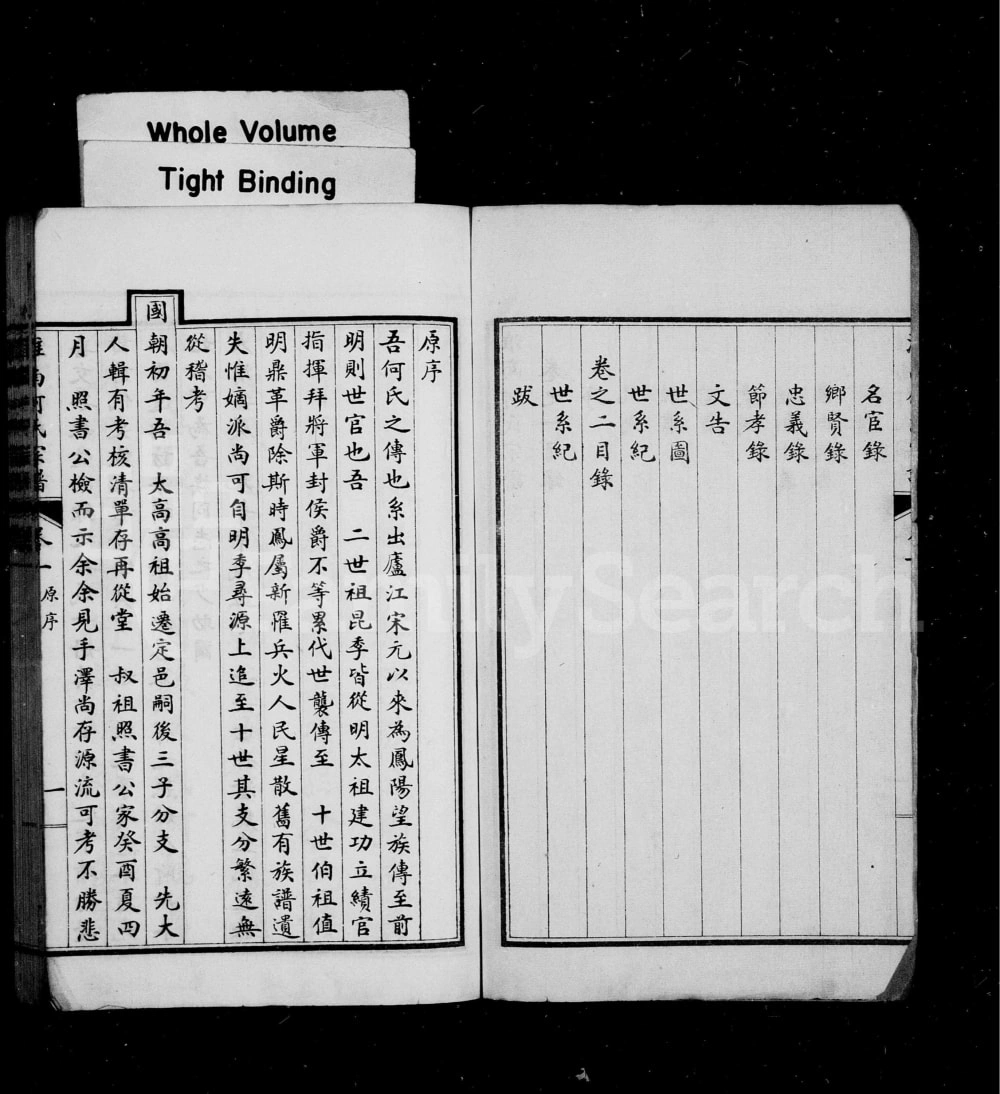 Whole Volume
Tight Binding
名宦錄
鄉賢錄
忠義錄
節孝錄
文告
世系圖
世系紀
卷之二目錄
世系紀
跋
原序
吾何氏之傳也系出廬江宋元以來為鳳陽望族傳至前
明則世官也吾　二世祖昆季皆從明太祖建功立績官
指揮拜將軍封侯爵不等累代世襲傳至　十世伯祖值
明鼎革爵除斯時鳳屬新罹兵火人民星散舊有族譜遺
失惟嫡派尚可自明季尋源上追至十世其支分繁遠無
從稽考
國朝初年吾　太高高祖始遷定邑嗣後三子分支　先大
人輯有考核清單存再從堂　叔祖照書公家癸酉夏四
月　照書公檢而示余余見手澤尚存源流可考不勝悲
淮南何氏宗譜　卷一　原序　一
FamilySearch